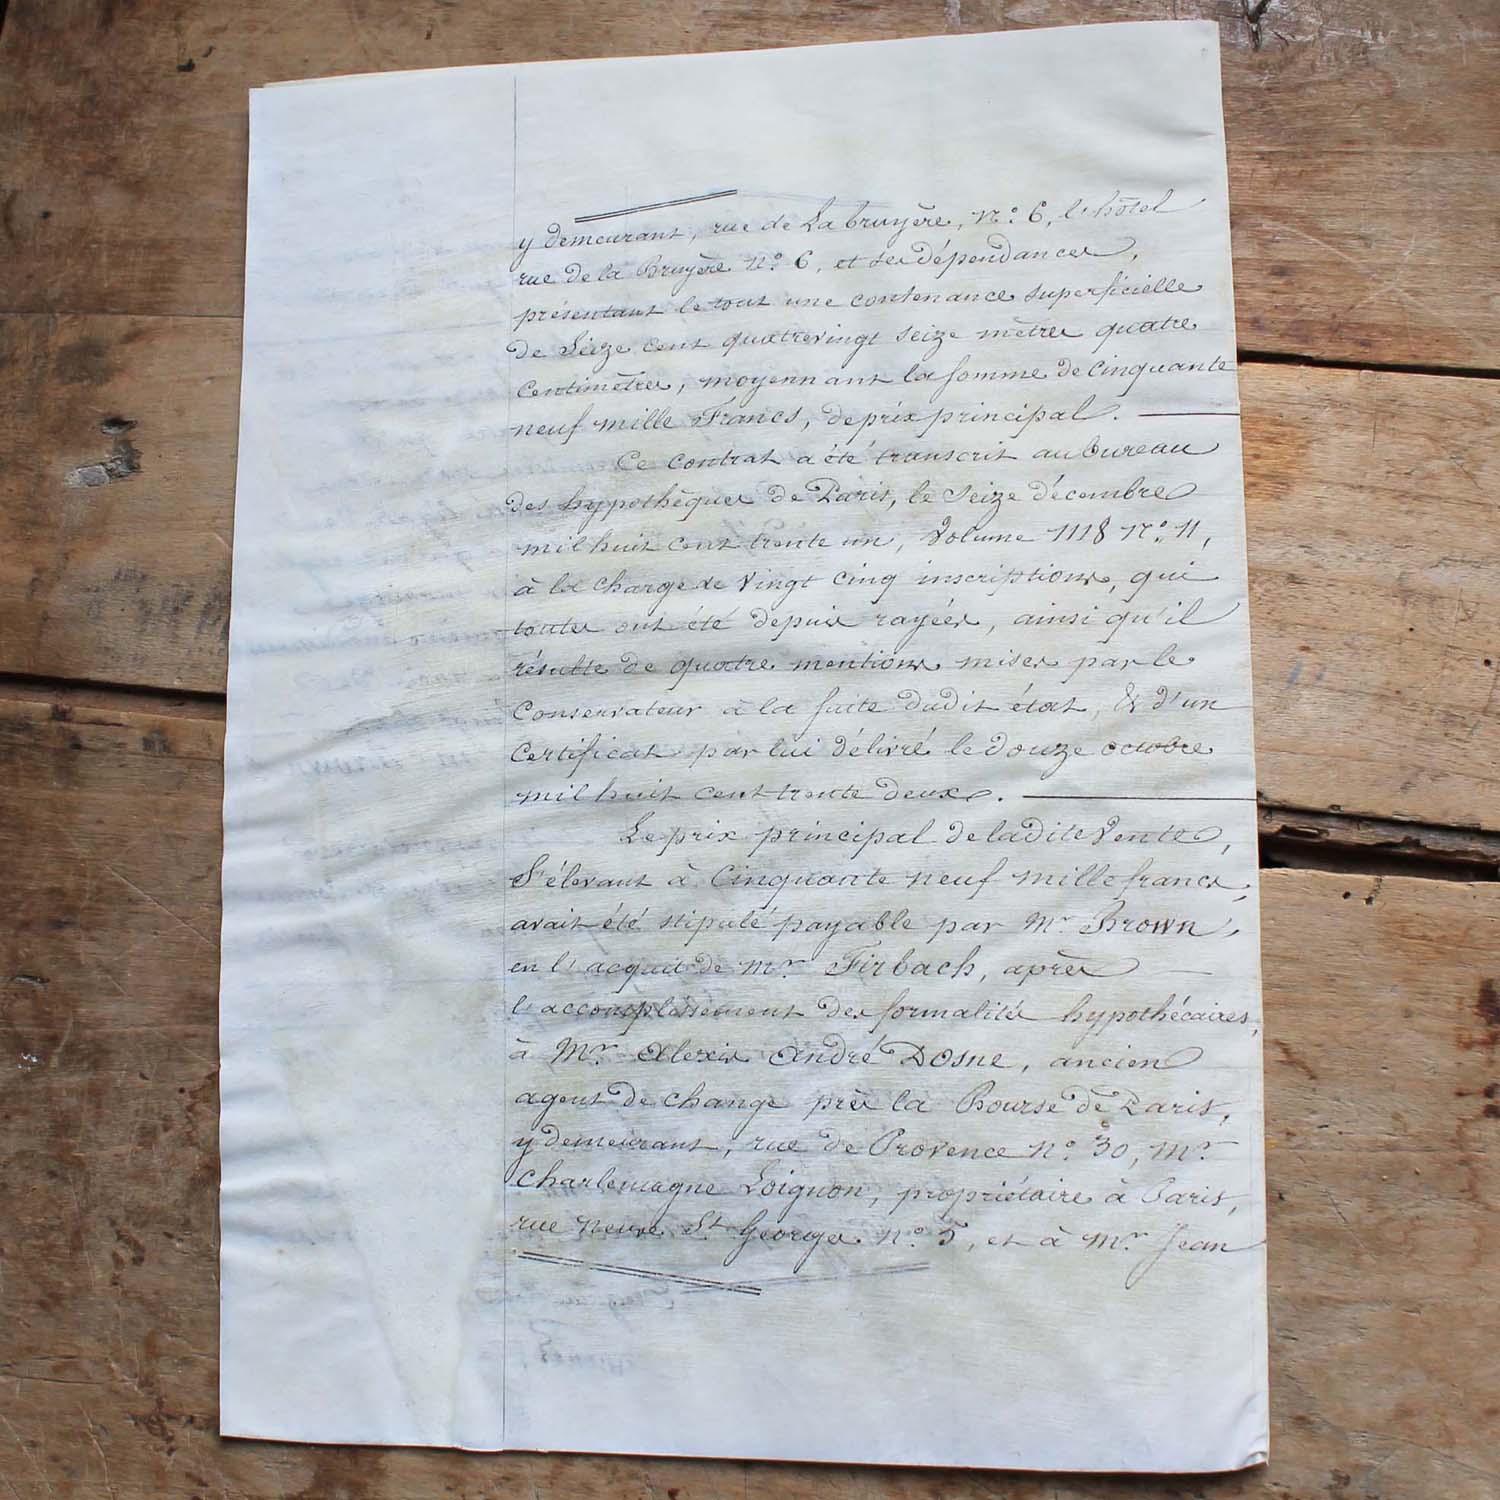 y demeurant, rue de Labruyère, N.° 6, l'hôtel
rue de la Bruyère N.° 6, et ses dépendances,
présentant le tout une contenance superficielle
de Seize cent quatrevingt seize mètres quatre
Centimètres, moyennant la somme de Cinquante
neuf mille Francs, de prix principal.
Ce contrat a été transcrit au bureau
des hypothèques de Paris, le Seize décembre
mil huit cent trente un, Volume 1118 N.° 11,
à la charge de Vingt Cinq inscriptions, qui
toutes ont été depuis rayées, ainsi qu'il
résulte de quatre mentions mises par le
Conservateur à la suite dudit état, & d'un
Certificat par lui délivré le douze octobre
mil huit cent trente deux.
Le prix principal de ladite Vente,
S'élevant à Cinquante neuf mille francs,
avait été stipulé payable par Mr Brown,
en l'acquit de Mr Firbach, après
l'accomplissement des formalités hypothécaires,
à Mr Alexis André Dosne, ancien
agent de change près la Bourse de Paris,
y demeurant, rue de Provence N.° 30, Mr
Charlemagne Loignon, propriétaire à Paris,
rue Neuve St Georges N.° 5, et à Mr Jean